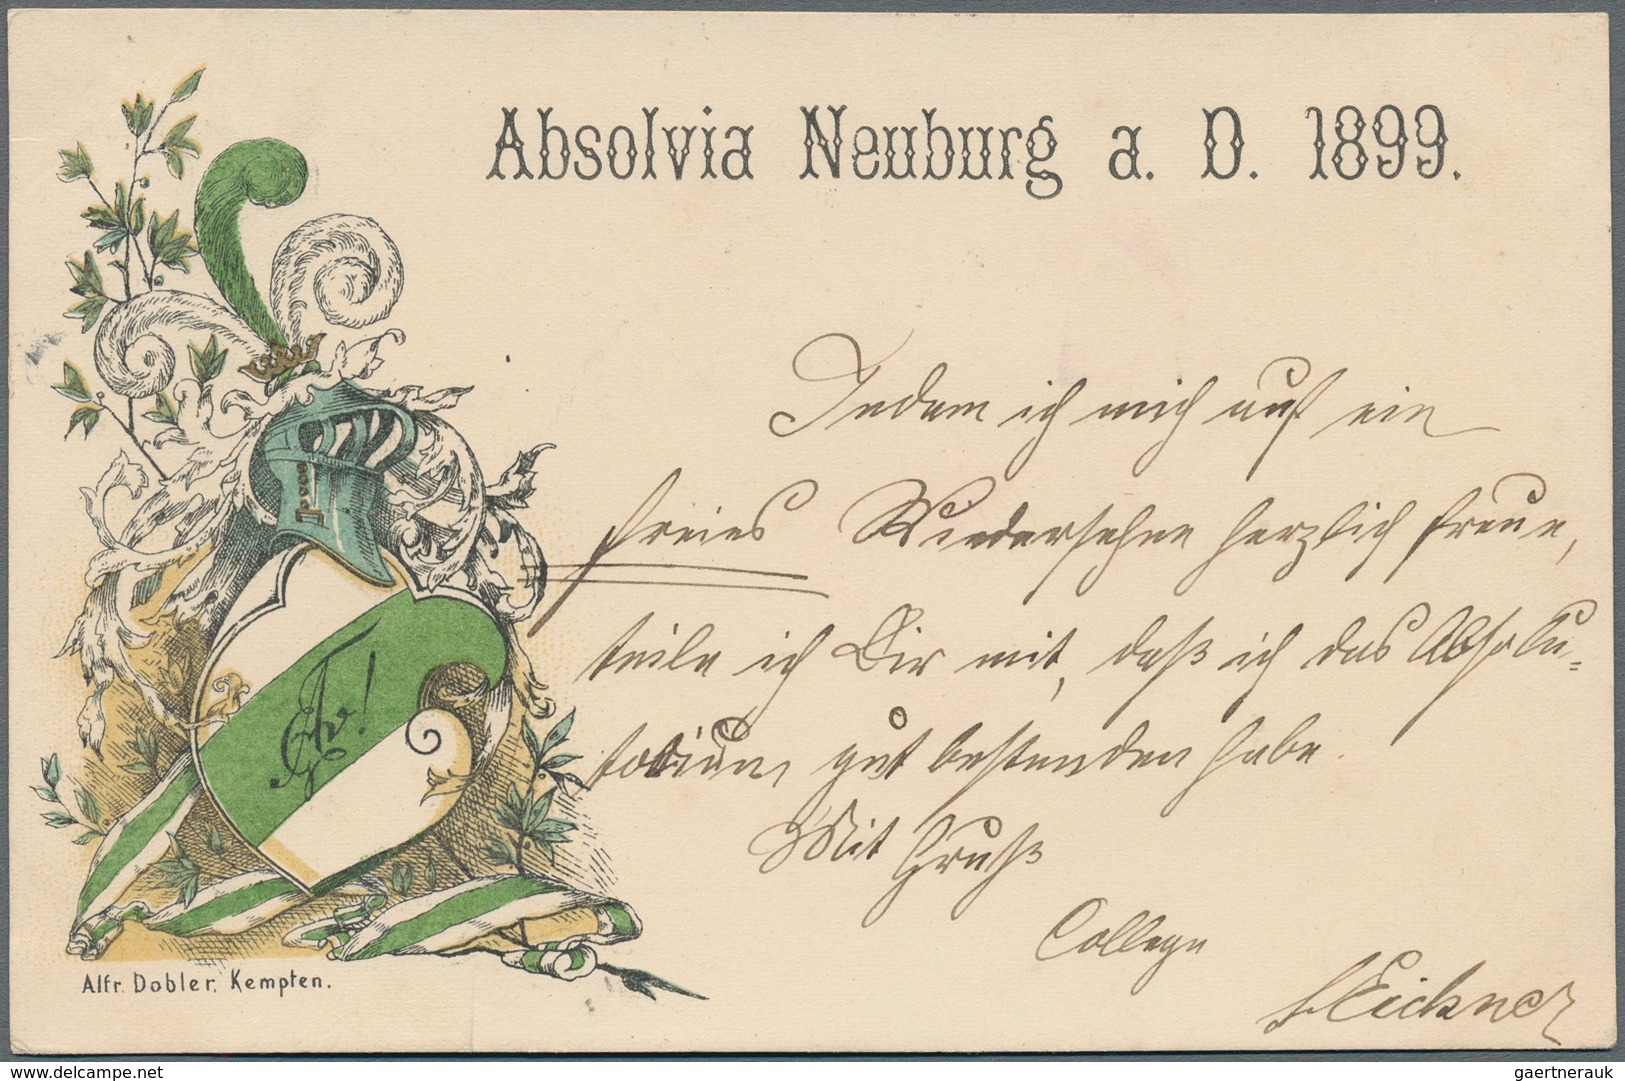 Absolvia Neuburg a. D. 1899.
Indem ich mich auf ein
freies Wiedersehen herzlich freue,
teile ich Dir mit, daß ich das Absolu-
torium gut bestanden habe.
Mit Gruß
College
Eichner
Alfr. Dobler, Kempten.
www.delcampe.net
gaertnerauk